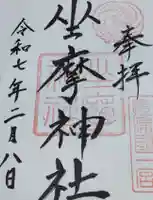 奉拝
坐摩神社
令和七年二月八日